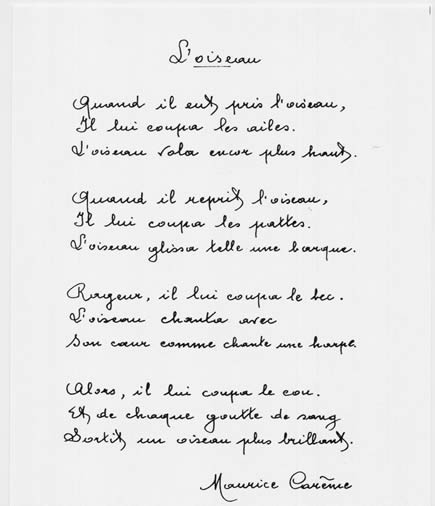 L'oiseau
Quand il eut pris l'oiseau,
Il lui coupa les ailes.
L'oiseau vola encor plus haut.
Quand il reprit l'oiseau,
Il lui coupa les pattes.
L'oiseau glissa telle une barque.
Rageur, il lui coupa le bec.
L'oiseau chanta avec
Son cœur comme chante une harpe.
Alors, il lui coupa le cou.
Et de chaque goutte de sang
Sortit un oiseau plus brillant.
Maurice Carême